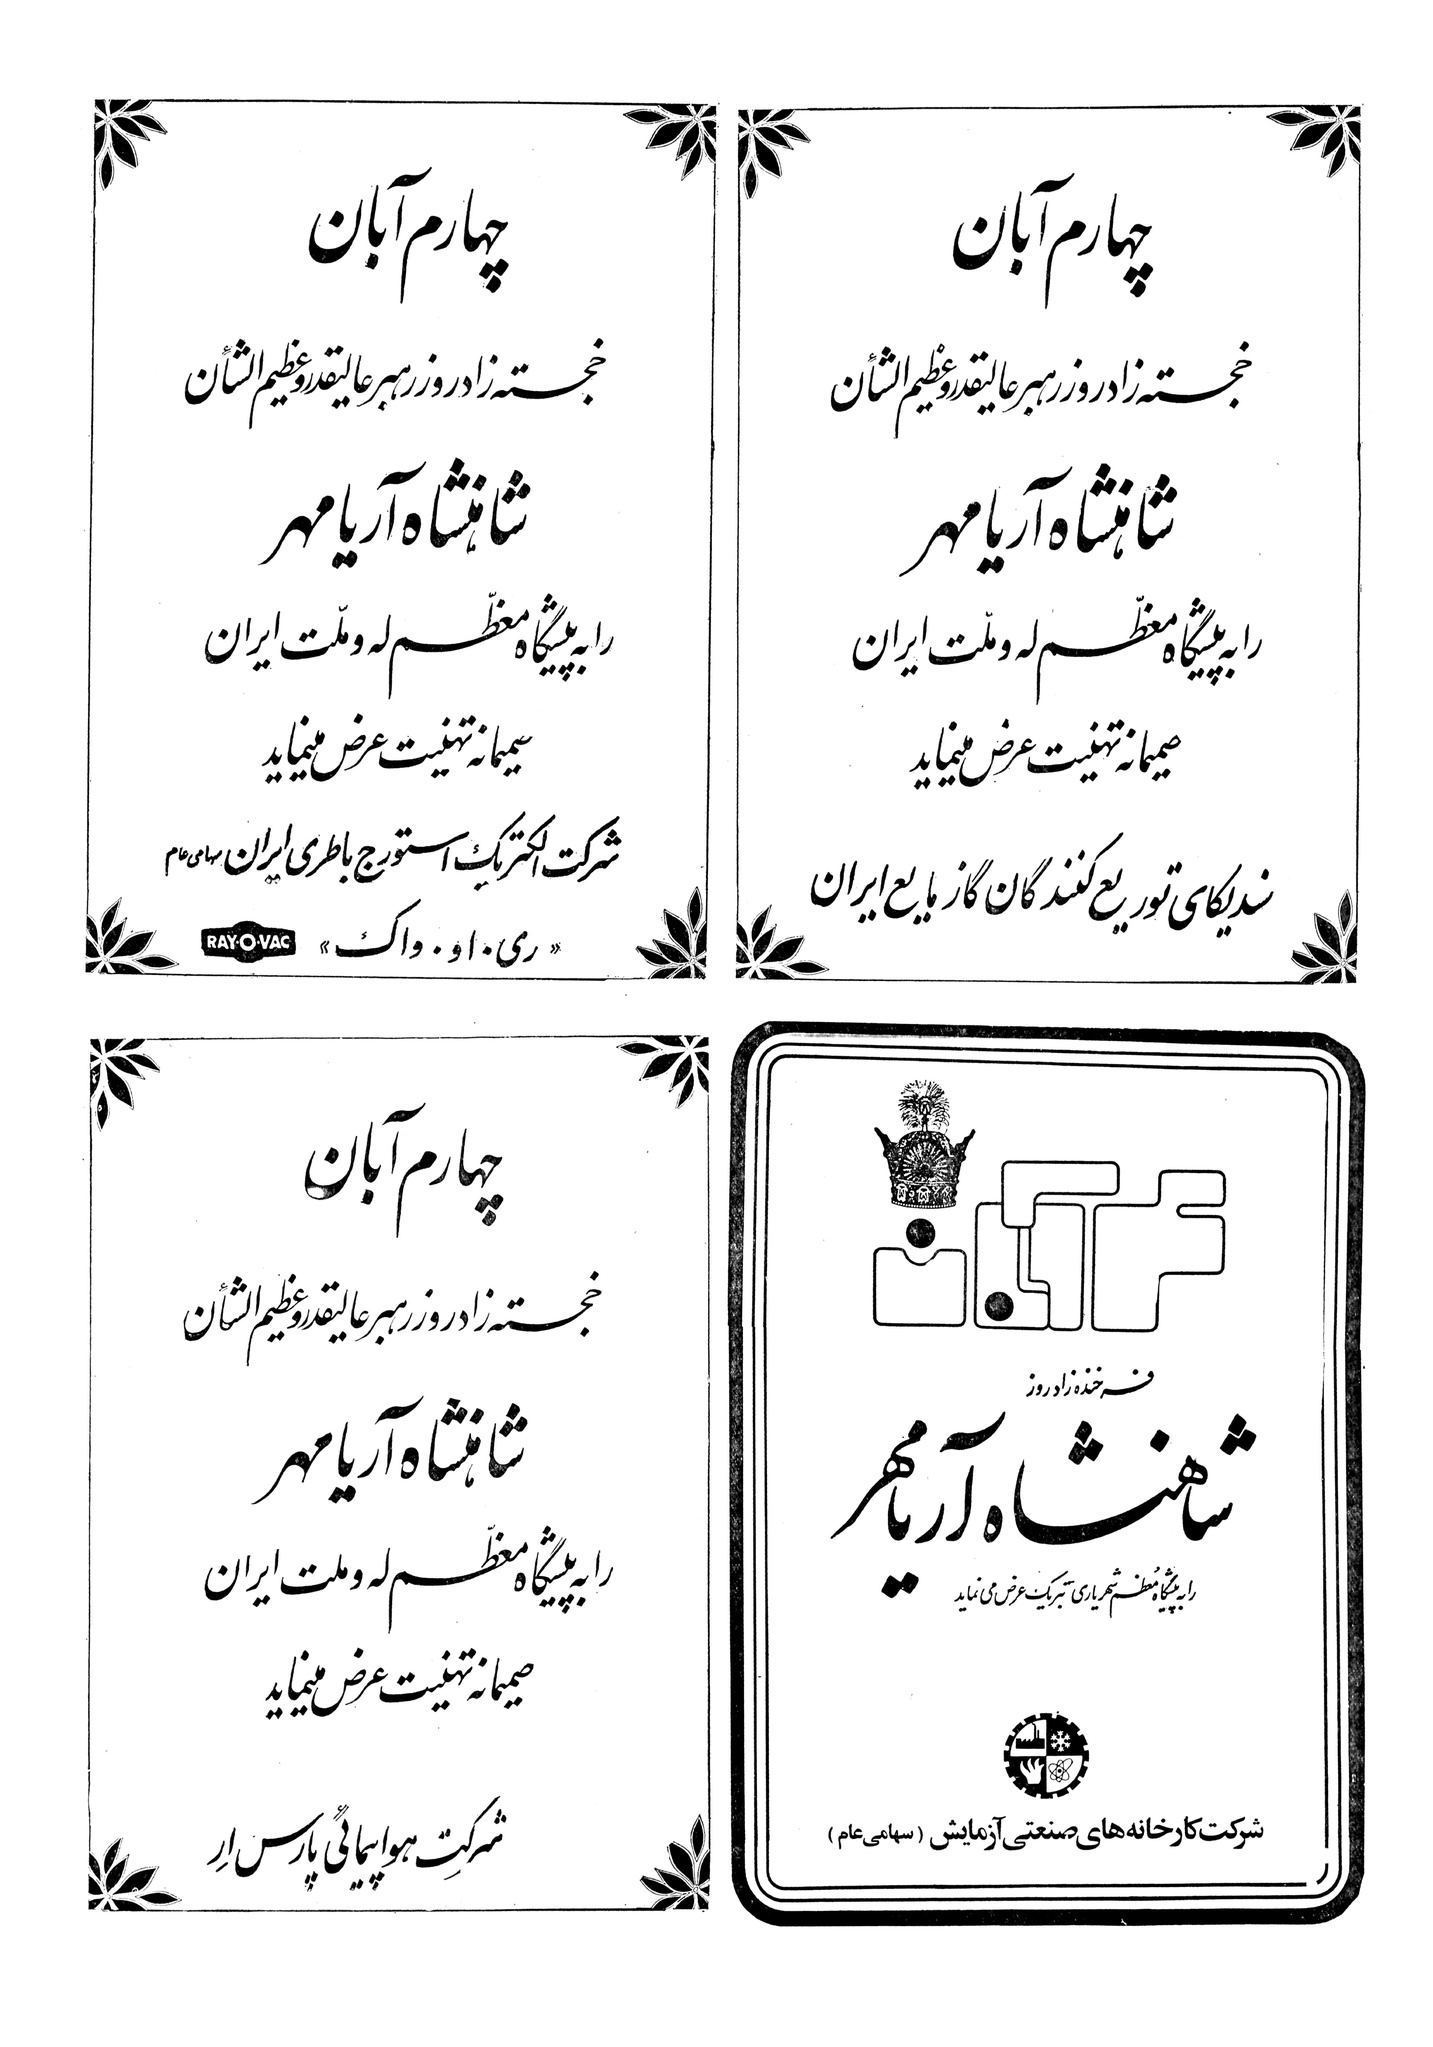 چهارم آبان
خجسته زادروز رهبر عالیقدر و عظیم الشأن
شاهنشاه آریامهر
را به پیشگاه معظّم له و ملّت ایران
صمیمانه تهنیت عرض مینماید
سندیکای توزیع کنندگان گاز مایع ایران
چهارم آبان
خجسته زادروز رهبر عالیقدر و عظیم الشأن
شاهنشاه آریامهر
را به پیشگاه معظّم له و ملّت ایران
صمیمانه تهنیت عرض مینماید
شرکت الکتریک استورج باطری ایران سهامی عام
«ری.او.واک» RAY-O-VAC
۴ آبان
فرخنده زادروز
شاهنشاه آریامهر
را به پیشگاه معظم شهریاری تبریک عرض می نماید
شرکت کارخانه های صنعتی آزمایش (سهامی عام)
چهارم آبان
خجسته زادروز رهبر عالیقدر و عظیم الشأن
شاهنشاه آریامهر
را به پیشگاه معظّم له و ملت ایران
صمیمانه تهنیت عرض مینماید
شرکت هواپیمائی پارس ار